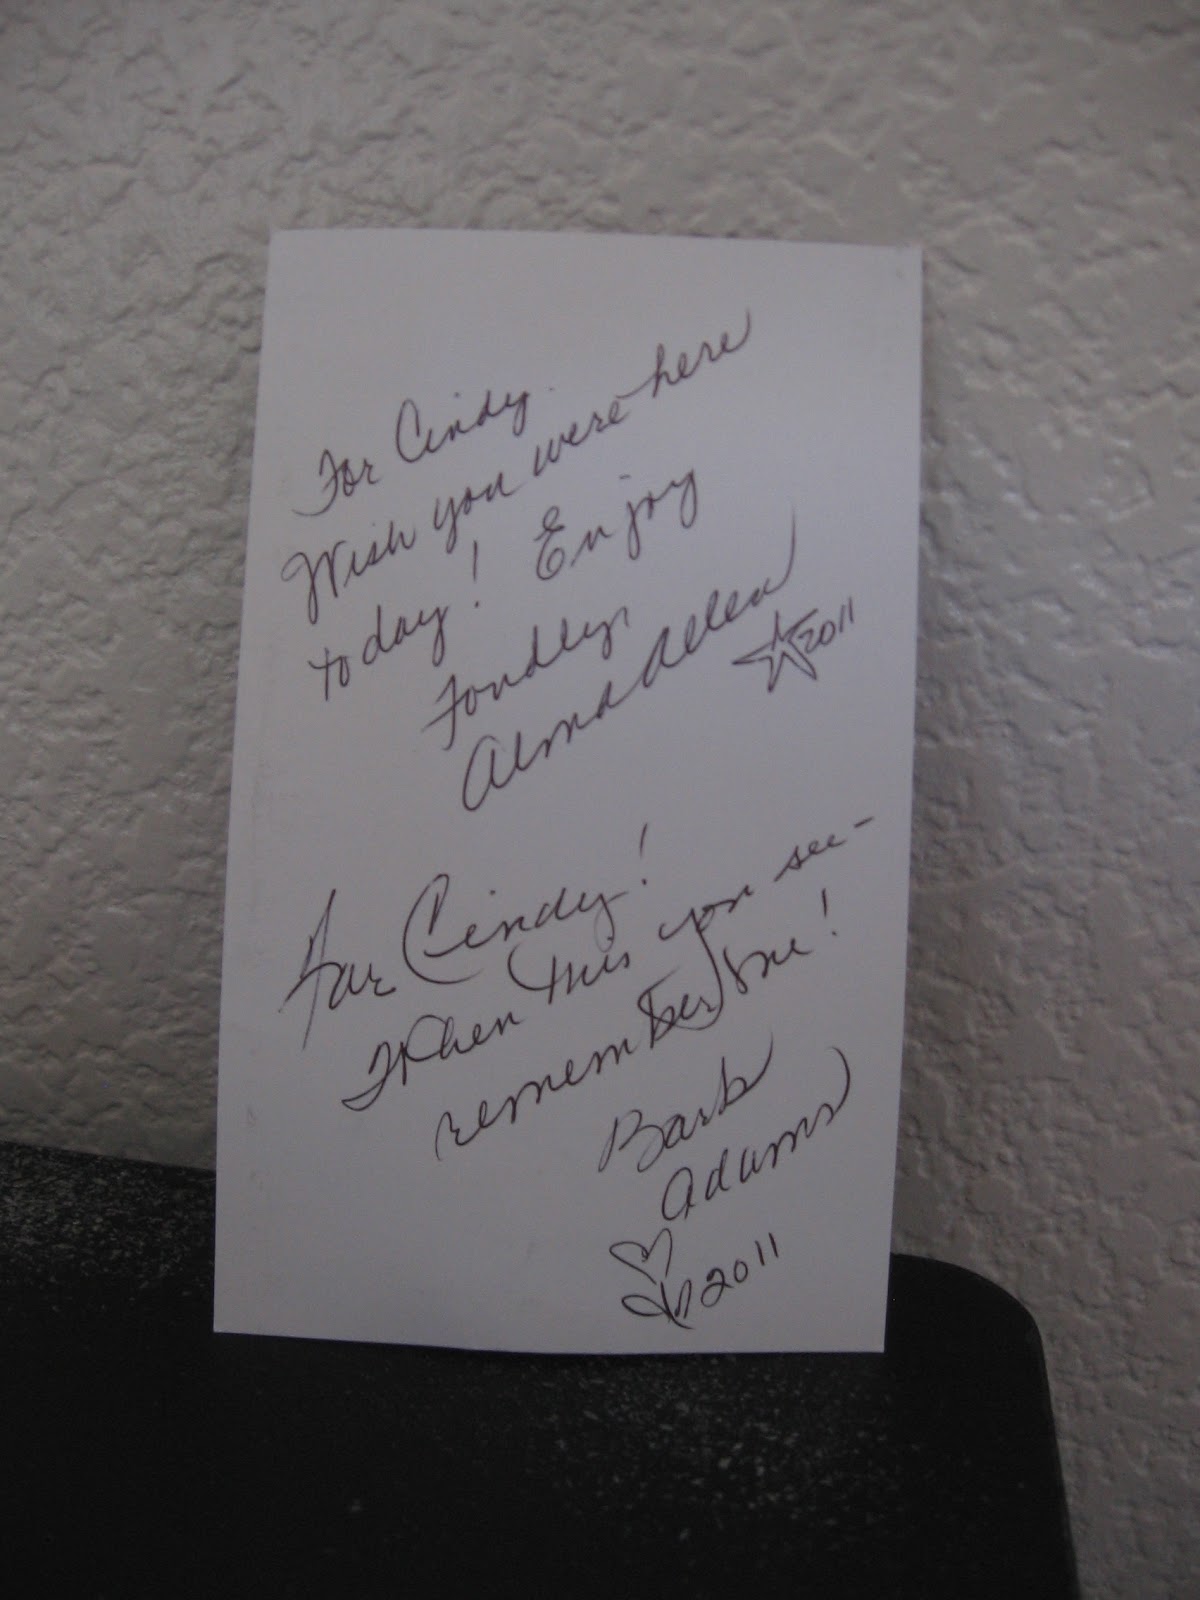 For Cindy.
Wish you were here
today! Enjoy
Fondly,
Alma Allen
2011
For Cindy!
When this you see -
remember me!
Barb
Adams
2011